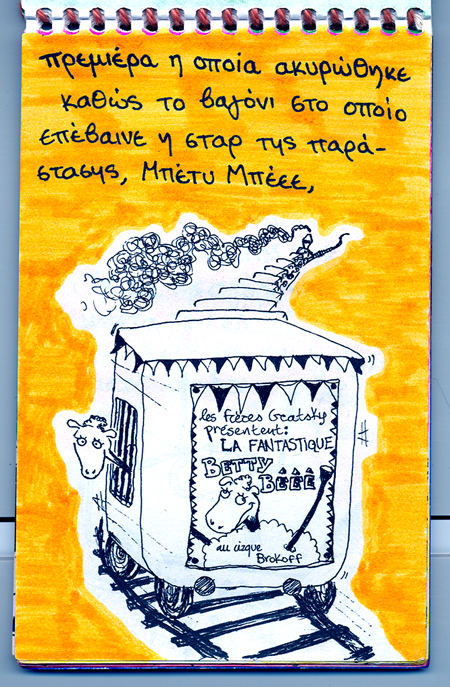 πρεμιέρα η οποία ακυρώθηκε
καθώς το βαγόνι στο οποίο
επέβαινε η σταρ της παρά-
στασης, Μπέτυ Μπέεε,
les frères Gratsky
présentent:
LA FANTASTIQUE
BETTY
BÊÊÊ
au cirque
Brokoff